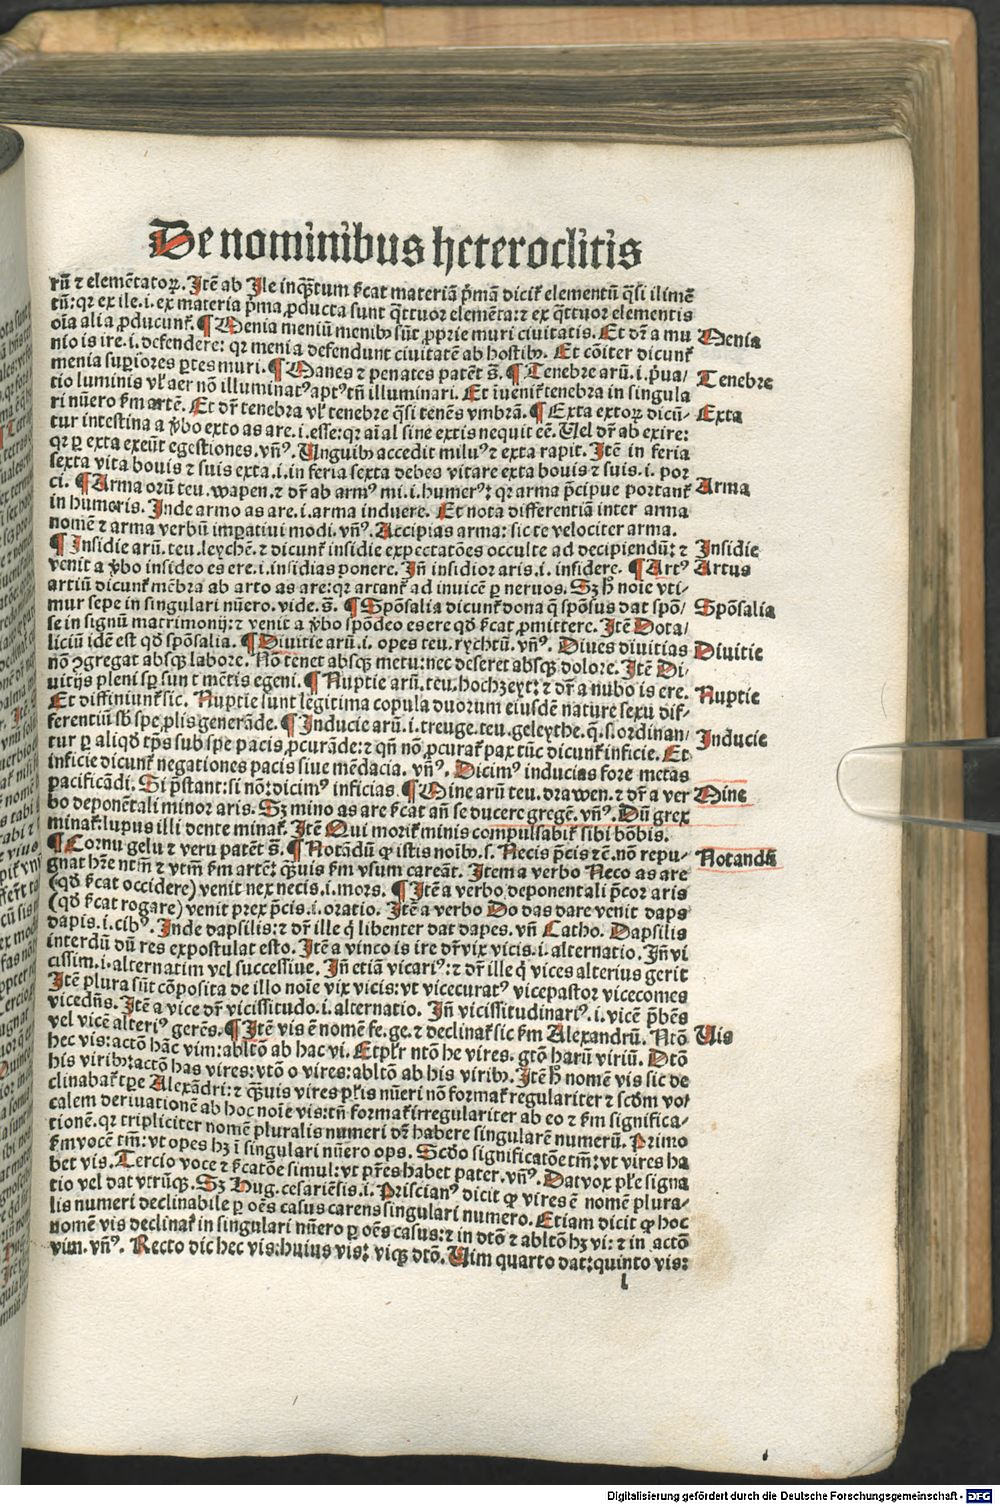 De nominibus heteroclitis
rū ⁊ elemētatoꝝ. Itē ab Ile inqᷓtum ẜcat materiā p̄mā dicit᷑ elementū qᷓsi ilimē
tū: qꝛ ex ile .i. ex materia p̄ma ꝓducta sunt qᷓttuor elemēta: ⁊ ex qᷓttuor elementis
oīa alia ꝓducunt᷑. ¶ Menia meniū menibꝰ sūt ꝓprie muri ciuitatis. Et dr̄ a mu
nio is ire .i. defendere: qꝛ menia defendunt ciuitatē ab hostibꝰ. Et cōiter dicunt᷑
menia supiores ꝑtes muri. ¶ Manes ⁊ penates patēt s̄. ¶ Tenebre arū .i. p̄ua/
tio luminis vl̓ aer nō illuminatꝰ aptꝰ tn̄ illuminari. Et īuenit᷑ tenebra in singula
ri nūero ẜm artē. Et dr̄ tenebra vl̓ tenebre qᷓsi tenēs vmbrā. ¶ Exta extoꝝ dicū-
tur intestina a v̓bo exto as are .i. esse: qꝛ aīal sine extis nequit eē. Uel dr̄ ab exire:
qꝛ ꝑ exta exeūt egestiones. vn̄ꝰ. Unguibꝰ accedit miluꝰ ⁊ exta rapit. Itē in feria
sexta vita bouis ⁊ suis exta .i. in feria sexta debes vitare exta bouis ⁊ suis .i. por
ci. ¶ Arma orū teu. wapen. ⁊ dr̄ ab armꝰ mi .i. humerꝰ: qꝛ arma p̄cipue portant᷑
in humeris. Inde armo as are .i. arma induere. Et nota differentiā inter arma
nomē ⁊ arma verbū impatiui modi. vn̄ꝰ. Accipias arma: sic te velociter arma.
¶ Insidie arū. teu. leychē. ⁊ dicunt᷑ insidie expectatōes occulte ad decipiendū: ⁊
venit a v̓bo insideo es ere .i. insidias ponere. Jn̄ insidior aris .i. insidere. ¶ Artꝰ
artiū dicunt᷑ mēbra ab arto as are: qꝛ artant᷑ ad inuicē ꝑ neruos. Sꝫ h̄ noīe vti-
mur sepe in singulari nūero. vide. s̄. ¶ Spōsalia dicunt᷑ dona q̄ spōsus dat spō/
se in signū matrimonij: ⁊ venit a v̓bo spōdeo es ere qd̓ ẜcat ꝓmittere. Itē Dota/
liciū idē est qd̓ spōsalia. ¶ Diuitie arū .i. opes teu. rychtū. vn̄ꝰ. Diues diuitias
nō ꝯgregat absqꝫ labore. Nō tenet absqꝫ metu: nec deseret absqꝫ dolore. Itē Di/
uitijs pleni sp sunt mētis egeni. ¶ Nuptie arū. teu. hochzeyt: ⁊ dr̄ a nubo is ere.
Et diffiniunt᷑ sic. Nuptie sunt legitima copula duorum eiusdē nature sexu dif-
ferentiū sb̓ spe ꝓlis generāde. ¶ Inducie arū .i. treuge. teu. geleythe. q̄. s. ordinan/
tur ꝑ aliqd̓ tp̄s sub spe pacis ꝓcurāde: ⁊ qn̄ nō ꝓcurat᷑ pax tūc dicunt᷑ inficie. Et
inficie dicunt᷑ negationes pacis siue mēdacia. vn̄ꝰ. Dicimꝰ inducias fore metas
pacificādi. Si p̄stant: si nō: dicimꝰ inficias. ¶ Mine arū teu. drawen. ⁊ dr̄ a ver
bo deponētali minor aris. Sꝫ mino as are ẜcat an̄ se ducere gregē. vn̄ꝰ. Dū grex
minat᷑: lupus illi dente minat᷑. Itē Qui morit᷑ minis compulsabit᷑ sibi bōbis.
¶ Cornu gelu ⁊ veru patēt s̄. ¶ Notādū ꝙ istis noībꝰ. s. Necis p̄cis ⁊c̄. nō repu-
gnat hr̄e ntm̄ ⁊ vtm̄ ẜm artē: qᷓuis ẜm vsum careāt. Item a verbo Neco as are
(qd̓ ẜcat occidere) venit nex necis .i. mors. ¶ Itē a verbo deponentali p̄cor aris
(qd̓ ẜcat rogare) venit prex p̄cis .i. oratio. Itē a verbo Do das dare venit daps
dapis .i. cibꝰ. Inde dapsilis: ⁊ dr̄ ille q̓ libenter dat dapes. vn̄ Catho. Dapsilis
interdū dū res expostulat esto. Itē a vinco is ire dr̄ vix vicis .i. alternatio. Jn̄ vi
cissim .i. alternatim vel successiue. Jn̄ etiā vicariꝰ: ⁊ dr̄ ille q̓ vices alterius gerit
Itē plura sūt cōposita de illo noīe vix vicis: vt vicecuratꝰ vicepastor vicecomes
vicedn̄s. Itē a vice dr̄ vicissitudo .i. alternatio. Jn̄ vicissitudinariꝰ .i. vicē p̄bēs
vel vicē alteriꝰ gerēs. ¶ Itē vis ē nomē fe. ge. ⁊ declinat᷑ sic ẜm Alexandrū. Ntō
hec vis: actō hāc vim: abltō ab hac vi. Et plr̓ ntō he vires. gtō harū viriū. Dtō
his viribꝰ: actō has vires: vtō o vires: abltō ab his viribꝰ. Itē h̄ nomē vis sic de
clinabat᷑ tp̄e Alexādri: ⁊ qᷓuis vires pl̓is nūeri nō format᷑ regulariter ⁊ scd̓m vo/
calem deriuationē ab hoc noīe vis: tn̄ format᷑ irregulariter ab eo ⁊ ẜm significa-
tionē. qꝛ tripliciter nomē pluralis numeri dꝫ habere singularē numerū. Primo
ẜm vocē tm̄: vt opes hꝫ ī singulari nūero ops. Scd̓o significatōe tm̄: vt vires ha
bet vis. Tercio voce ⁊ ẜcatōe simul: vt pr̄es habet pater. vn̄ꝰ. Dat vox pl̓e signa
tio vel dat vtrūqꝫ. Sꝫ Hug. cesariēsis .i. Priscianꝰ dicit ꝙ vires ē nomē plura-
lis numeri declinabile ꝑ oēs casus carens singulari numero. Etiam dicit ꝙ hoc
nomē vis declinat᷑ in singulari nūero ꝑ oēs casus: ⁊ in dtō ⁊ abltō hꝫ vi: ⁊ in actō
vim. vn̄ꝰ. Recto dic hec vis: huius vis: viqꝫ dtō. Uim quarto dat: quinto vis:
l
Menia
Tenebre
Exta
Arma
Insidie
Artus
Spōsalia
Diuitie
Nuptie
Inducie
Mine
Notandū
Uis
Digitalisierung gefördert durch die Deutsche Forschungsgemeinschaft - DFG